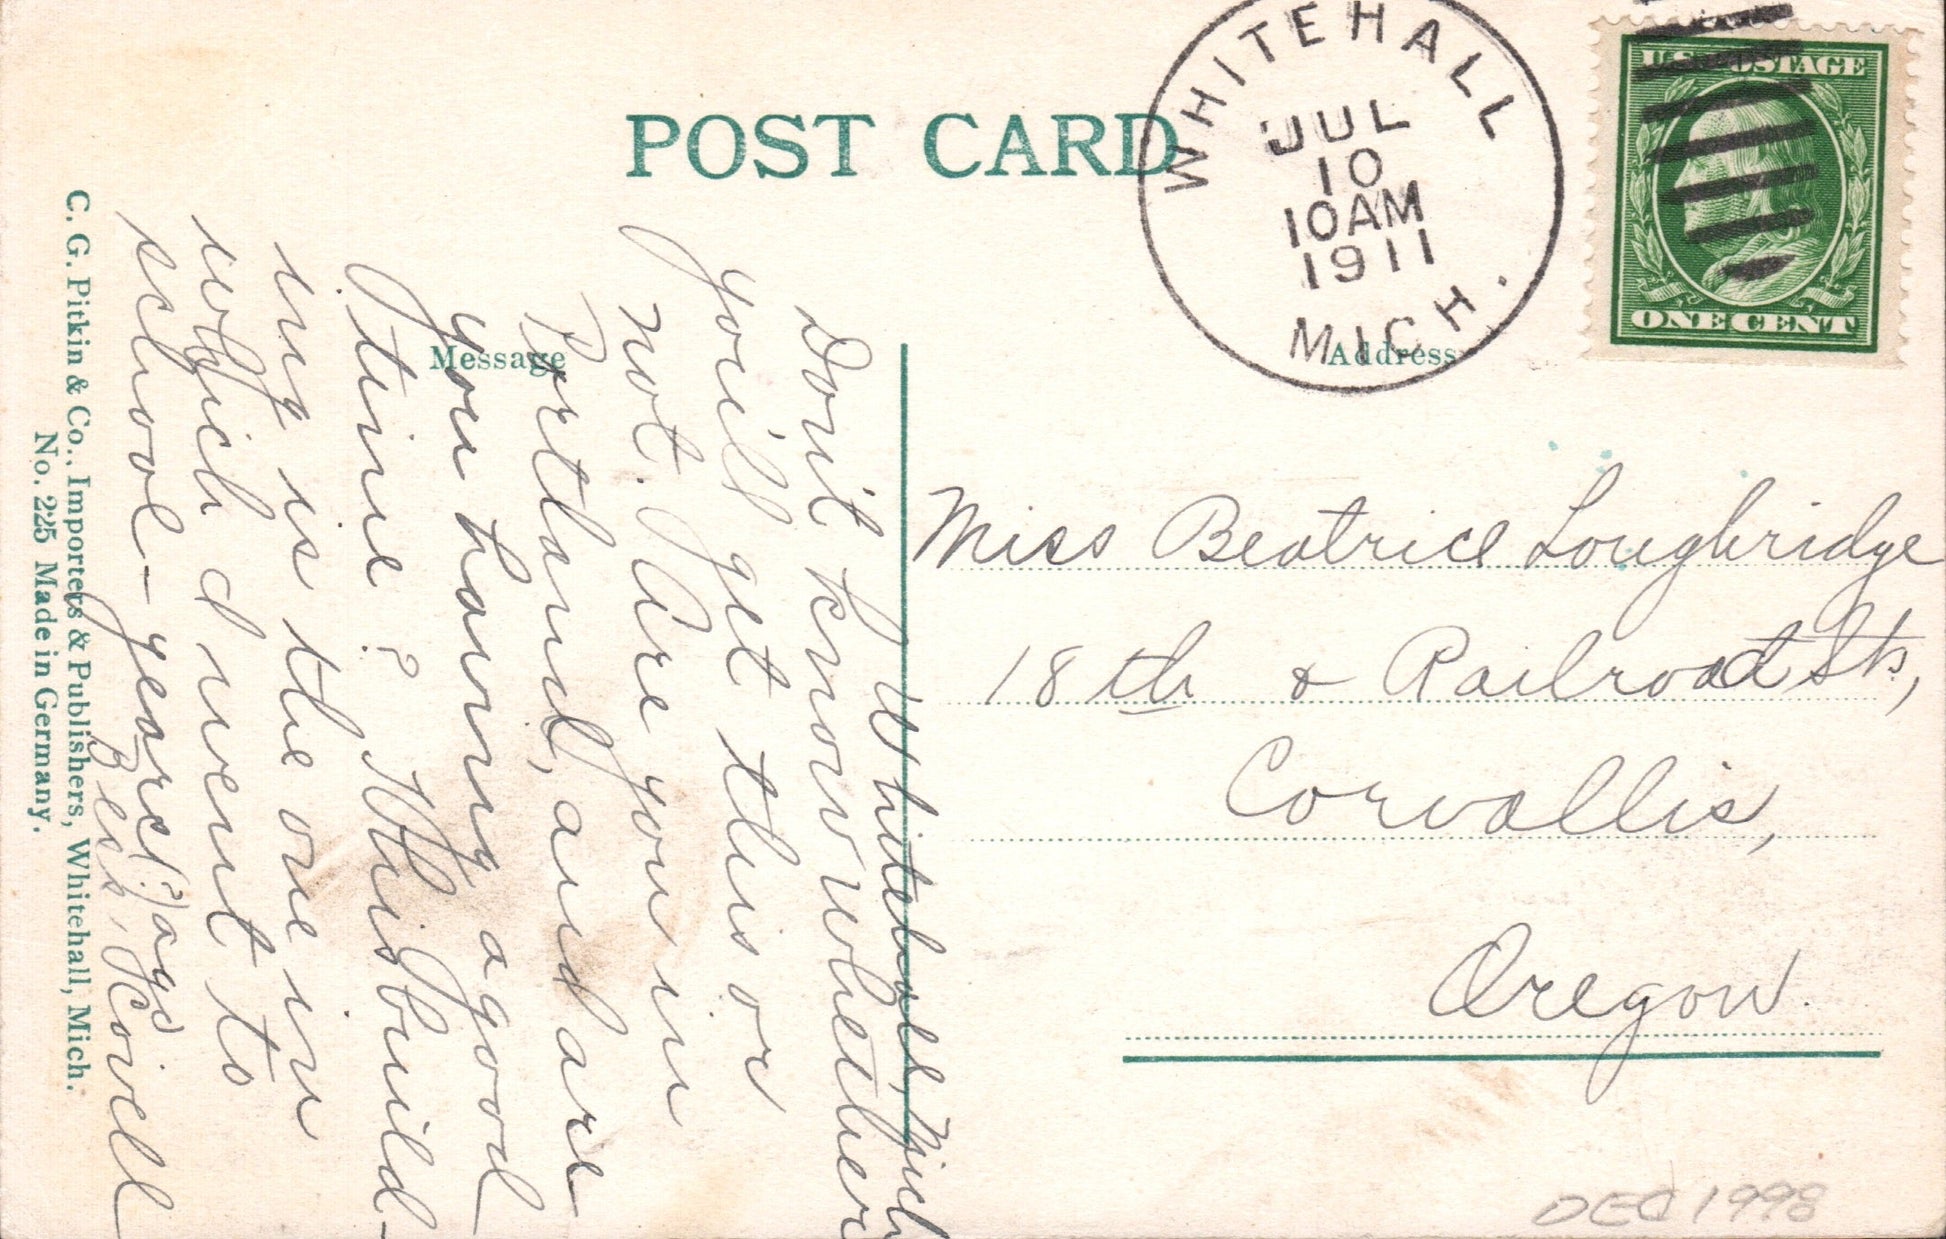 POST CARD
WHITEHALL
JUL
10
10AM
1911
MICH.
U.S. POSTAGE
ONE CENT
Message
Address
Miss Beatrice Loughridge
18th & Railroad Sts,
Corvallis,
Oregon.
Whitehall, Mich
Don't know whether
you'll get this or
not. Are you in
Portland, and are
you having a good
time? This build-
ing is the one in
which I went to
school - years(?) ago
Covell
C. G. Pitkin & Co., Importers & Publishers, Whitehall, Mich.
No. 225 Made in Germany.
DEC 1998